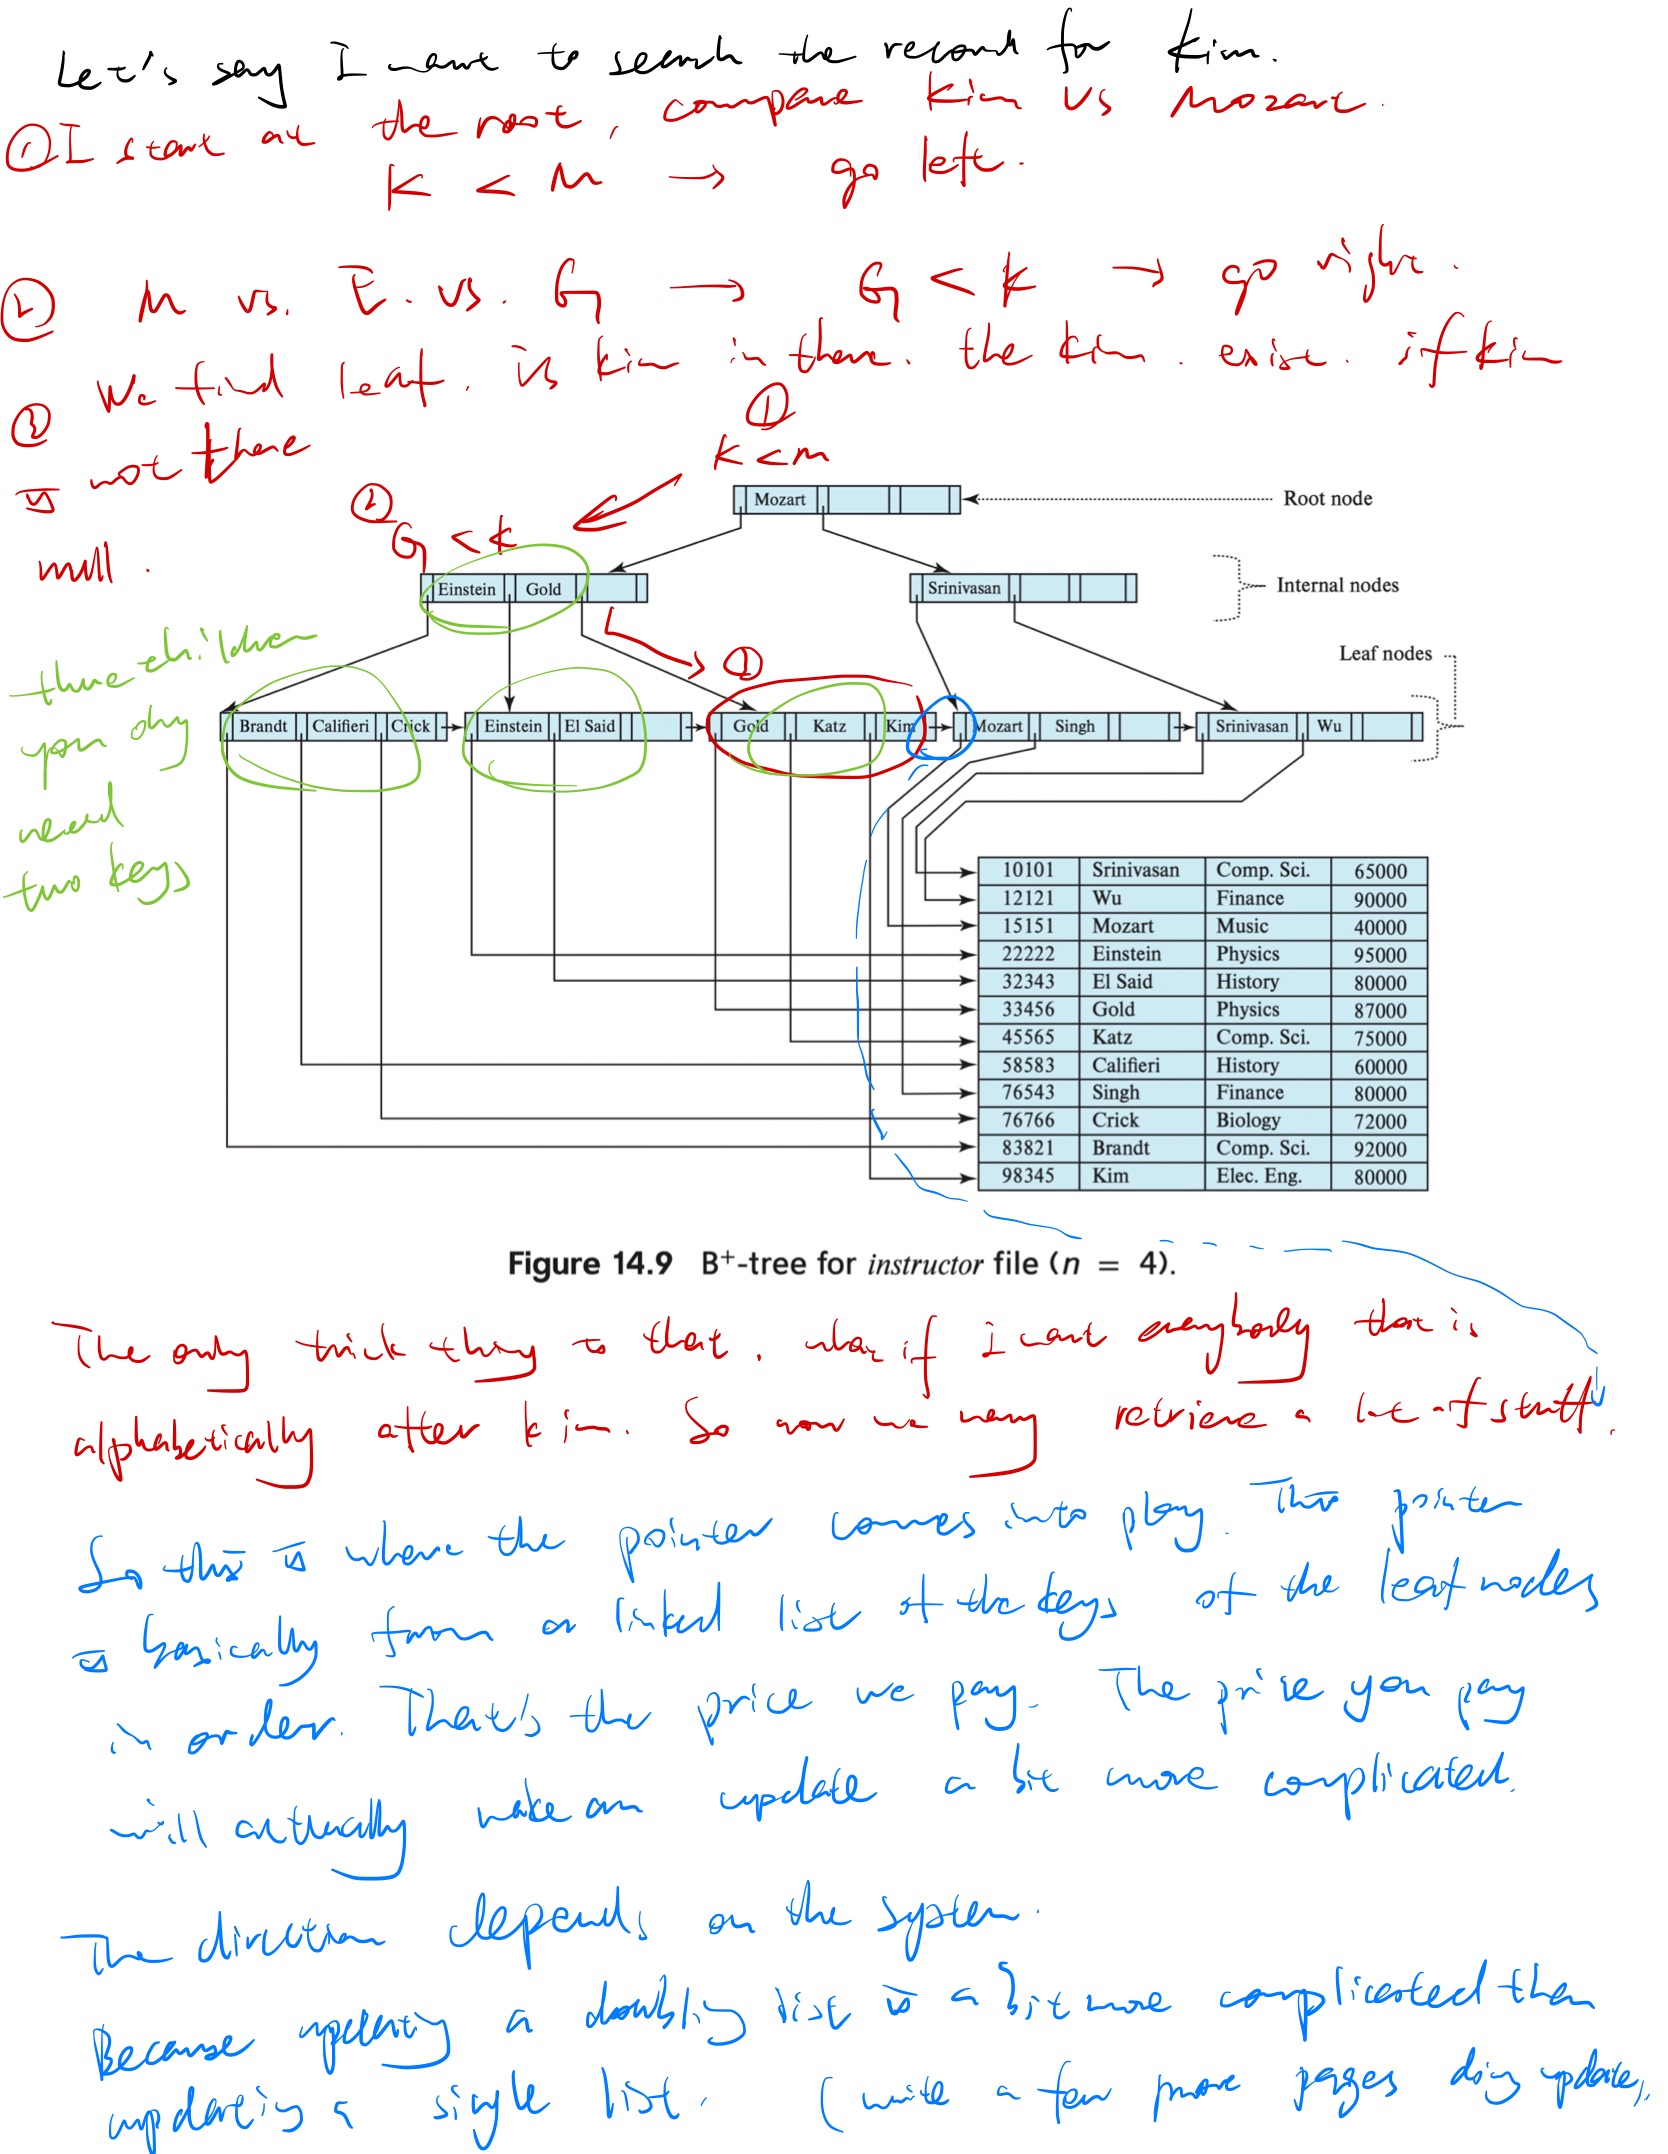 Let's say I want to search the record for Kim.
① I start at the root, compare Kim vs Mozart.
K < M → go left.
② M vs. E. vs. G → G < K → go right.
③ We find leaf. is Kim in there. the Kim. exist. if Kim
is not there
null.
①
K < M
②
G < K
Mozart
Root node
Einstein Gold
Srinivasan
Internal nodes
three children
you only
need
two keys
①
Leaf nodes
Brandt Califieri Crick
Einstein El Said
Gold Katz Kim
Mozart Singh
Srinivasan Wu
10101 Srinivasan Comp. Sci. 65000
12121 Wu Finance 90000
15151 Mozart Music 40000
22222 Einstein Physics 95000
32343 El Said History 80000
33456 Gold Physics 87000
45565 Katz Comp. Sci. 75000
58583 Califieri History 60000
76543 Singh Finance 80000
76766 Crick Biology 72000
83821 Brandt Comp. Sci. 92000
98345 Kim Elec. Eng. 80000
Figure 14.9 B⁺-tree for instructor file (n = 4).
The only trick thing to that. what if I want everybody that is
alphabetically after Kim. So now we may retrieve a lot of stuff.
So this is where the pointer comes into play. This pointer
is basically form a linked list of the keys of the leaf nodes
in order. That's the price we pay. The price you pay
will actually make an update a bit more complicated.
The direction depends on the system.
Because updating a doubly list is a bit more complicated than
updating a single list. (write a few more pages doing update).